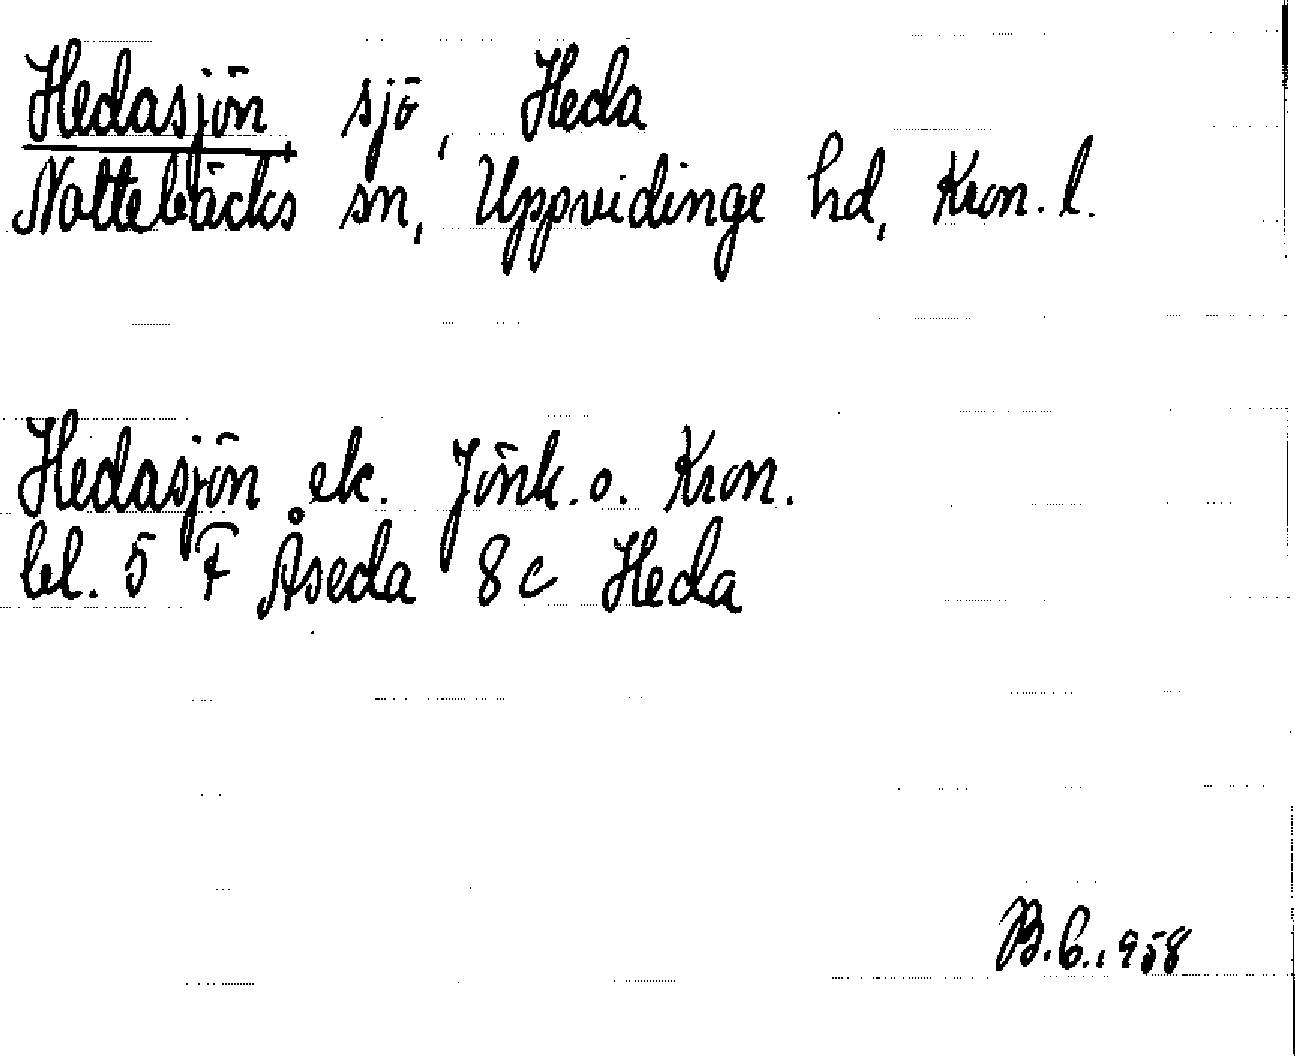 Hedasjön sjö, Heda
Nottebäcks sn, Uppvidinge hd, Kron. l.
Hedasjön ek. Jönk. o. Kron.
bl. 5 F Åseda 8c Heda
B.C. 1958